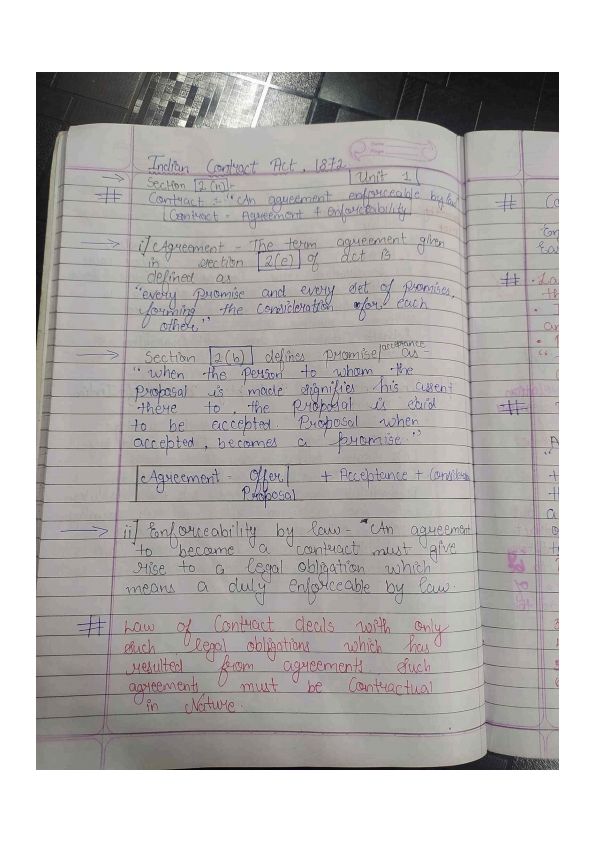 Indian Contract Act, 1872
Unit 1
→ Section 2(h):-
# Contract = "An agreement enforceable by law
Contract = Agreement + enforceability
→ i] Agreement - The term agreement given
in section 2(e) of act is
defined as
"every promise and every set of promises,
forming the consideration for each
other."
→ Section 2(b) defines promise/acceptance as -
"when the person to whom the
proposal is made signifies his assent
there to, the proposal is said
to be accepted. Proposal when
accepted, becomes a promise."
Agreement - Offer/ + Acceptance + Consideration
Proposal
→ ii] Enforceability by law - "An agreement
to become a contract must give
rise to a legal obligation which
means a duly enforceable by law.
# Law of Contract deals with only
such legal obligations which has
resulted from agreements such
agreements must be Contractual
in Nature.
#
#
#